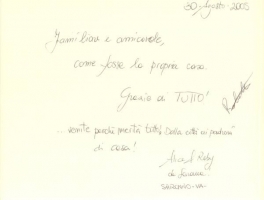 30-Agosto-2005
Familiare e amicarole,
come fosse la propria casa.
Grazie di TUTTO!
...venite perchè merita tutto! Dalla città ai
di casa!
da Saronno
SARONNO-VA